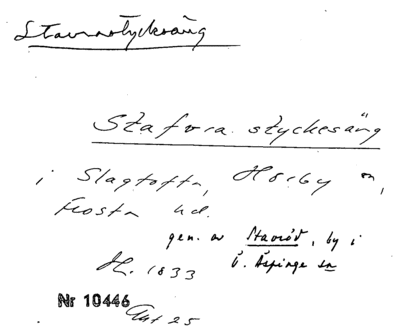 Stavrostyckeäng
Stafvra styckesäng
i Slagtofta, Hörby sn,
Frosta hd.
gen. av Stavröd, by i
H. 1833 Ö. Äspinge sn
Nr 10446
Akt 25